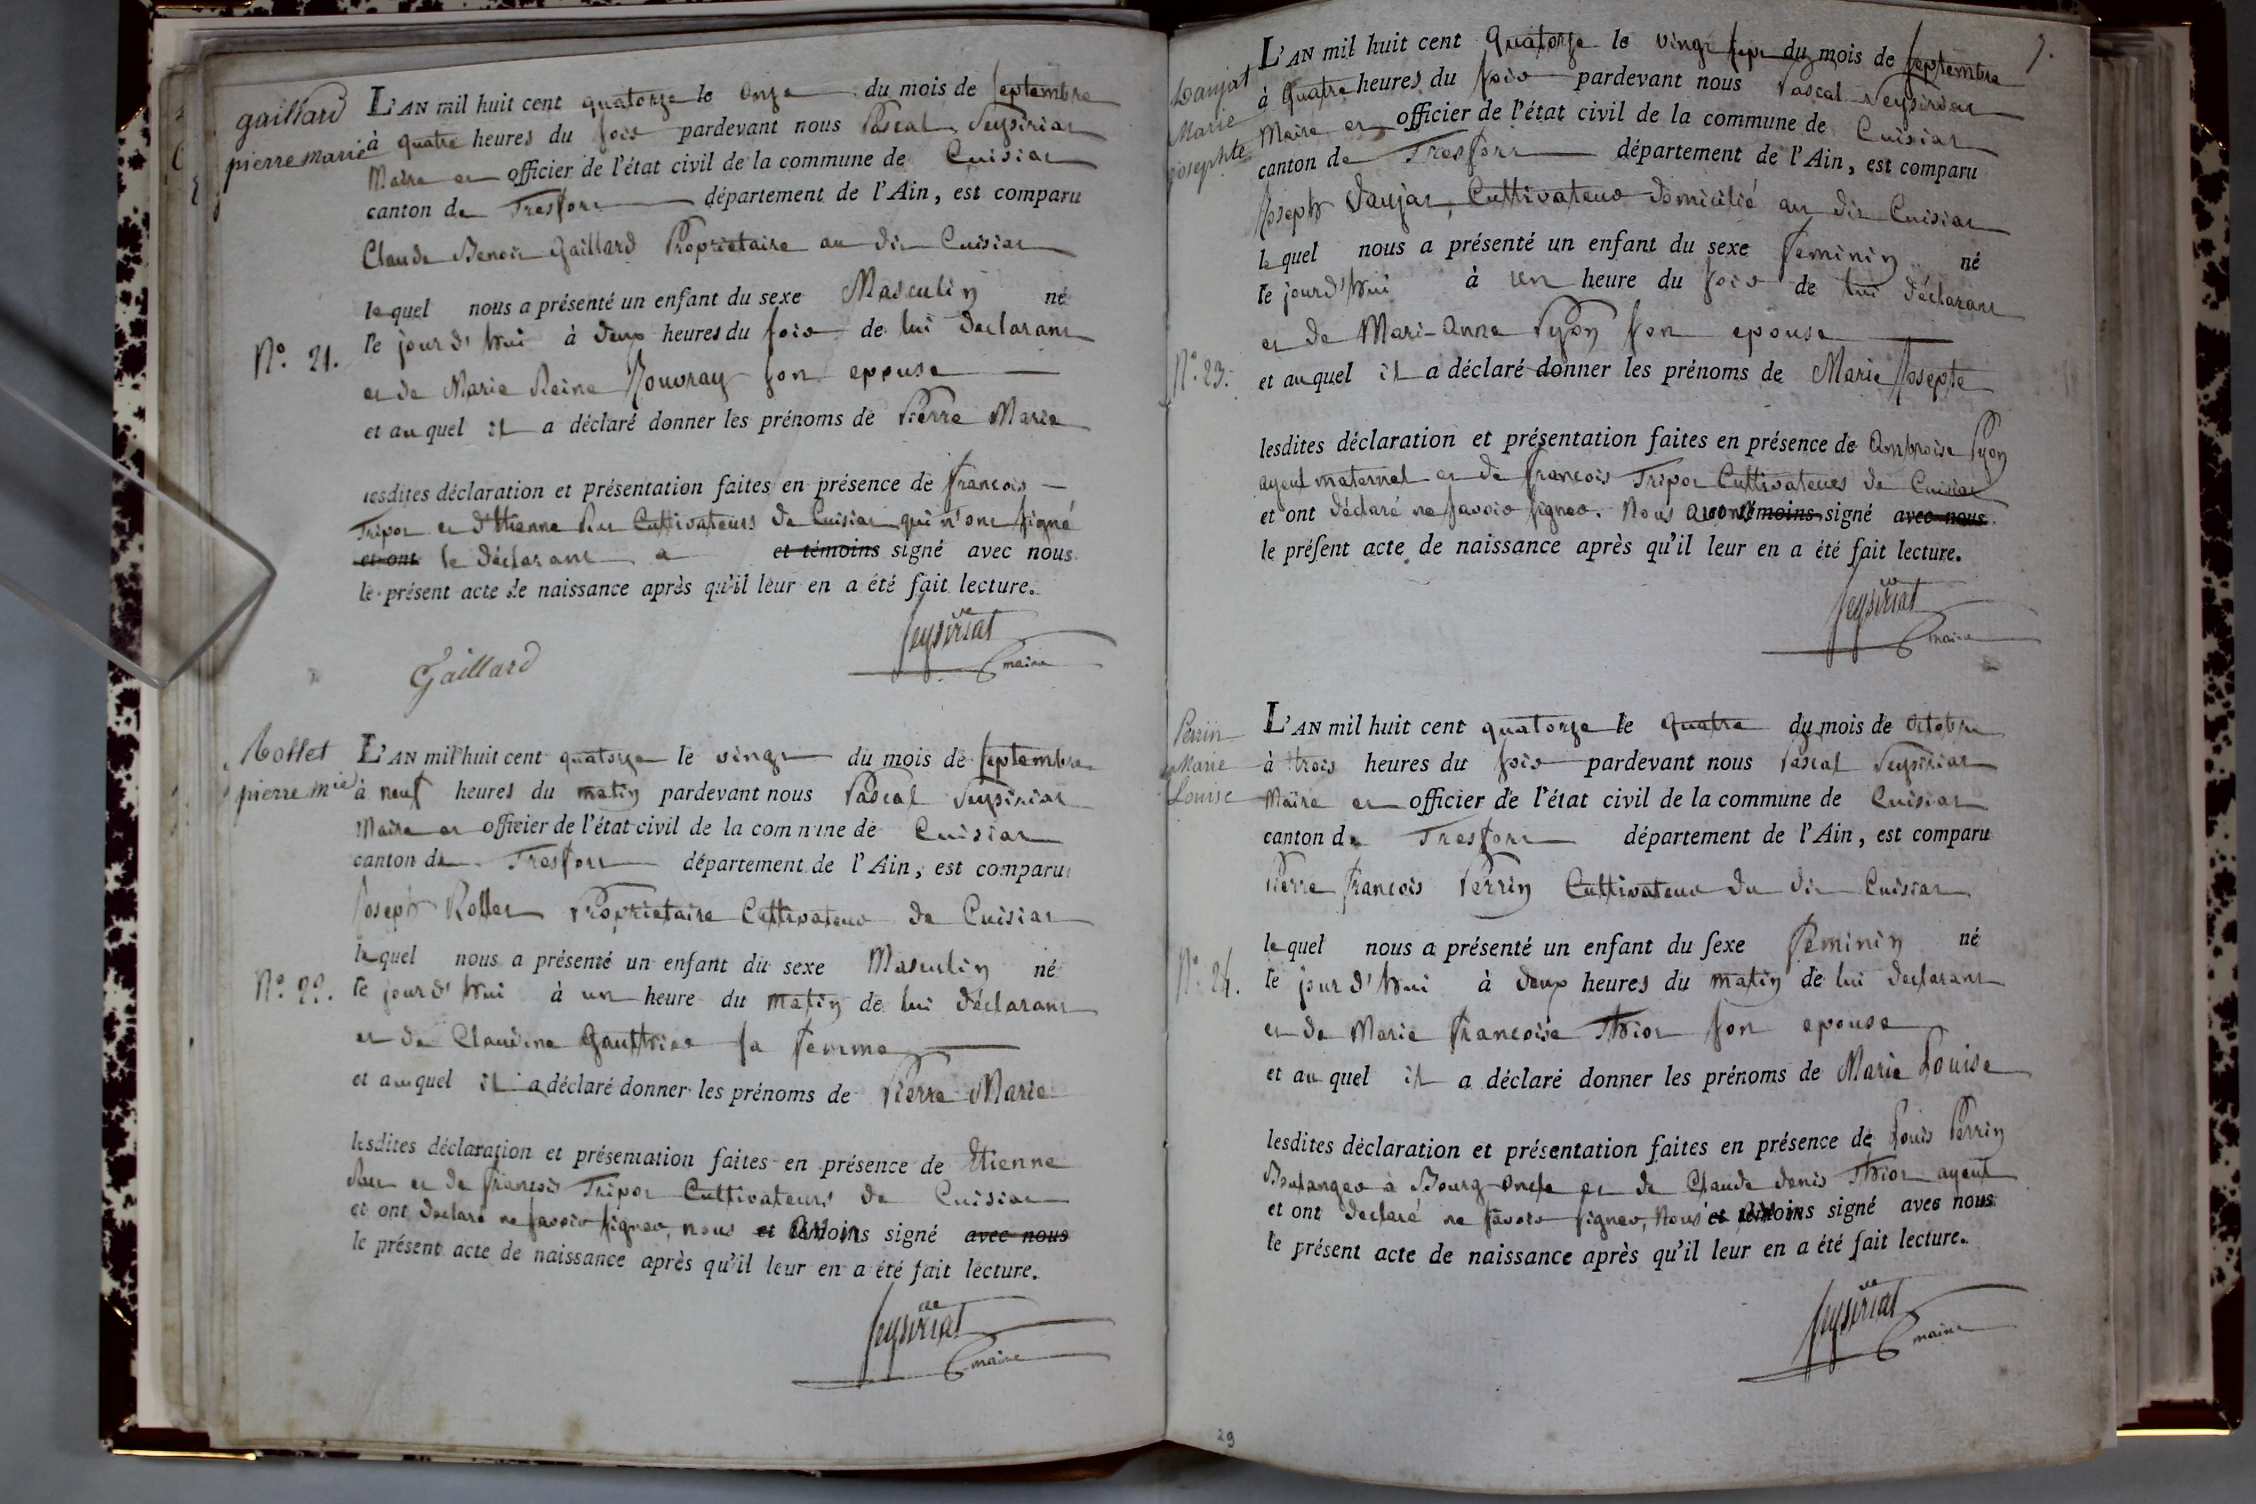 gaillard
pierre marie
L'AN mil huit cent quatorze le onze du mois de septembre
à quatre heures du soir pardevant nous Pascal Seysiriat
Maire et officier de l'état civil de la commune de Cuisiat
canton de Tresfort département de l'Ain, est comparu
Claude Benoit Gaillard Proprietaire au dit Cuisiat
lequel nous a présenté un enfant du sexe Masculin né
le jourd'hui à deux heures du soir de lui declarant
N.° 21.
et de Marie Reine Rouvray son epouse
et auquel il a déclaré donner les prénoms de Pierre Marie
lesdites déclaration et présentation faites en présence de francois
Tripoz et d'Etienne Cultivateurs de Cuisiat qui n'ont signé
et ont le déclarant a et témoins signé avec nous
le présent acte de naissance après qu'il leur en a été fait lecture.
Seysiriat
maire
Gaillard
Rollet
pierre mie
L'AN mil huit cent quatorze le vingt du mois de septembre
à neuf heures du matin pardevant nous Pascal Seysiriat
Maire et officier de l'état civil de la commune de Cuisiat
canton de Tresfort département de l'Ain, est comparu
Joseph Rollet Proprietaire Cultivateur de Cuisiat
lequel nous a présenté un enfant du sexe Masculin né
N.° 22.
le jourd'hui à un heure du matin de lui déclarant
et de Claudine Gauthier sa femme
et auquel il a déclaré donner les prénoms de Pierre Marie
lesdites déclaration et présentation faites en présence de Etienne
et de françois Tripoz Cultivateurs de Cuisiat
et ont declaré ne savoir signer, nous et témoins signé avec nous
le présent acte de naissance après qu'il leur en a été fait lecture.
Seysiriat
maire
7.
Daujat
Marie
josephte
L'AN mil huit cent quatorze le vingt sept du mois de septembre
à quatre heures du soir pardevant nous Pascal Seysiriat
Maire et officier de l'état civil de la commune de Cuisiat
canton de Tresfort département de l'Ain, est comparu
Joseph Daujat, Cultivateur domicilié au dit Cuisiat
lequel nous a présenté un enfant du sexe feminin né
le jourd'hui à un heure du soir de lui déclarant
et de Mari-anne Pyon son epouse
N.° 23.
et auquel il a déclaré donner les prénoms de Marie Josepte
lesdites déclaration et présentation faites en présence de ambroise Pyon
ayeul maternel et de francois Tripoz Cultivateurs de Cuisiat
et ont déclaré ne savoir signer. Nous avons témoins signé avec nous
le présent acte de naissance après qu'il leur en a été fait lecture.
Seysiriat
maire
Perrin
Marie
Louise
L'AN mil huit cent quatorze le quatre du mois de octobre
à trois heures du soir pardevant nous Pascal Seysiriat
Maire et officier de l'état civil de la commune de Cuisiat
canton de Tresfort département de l'Ain, est comparu
Pierre francois Perrin Cultivateur du dit Cuisiat
lequel nous a présenté un enfant du sexe feminin né
N.° 24.
le jourd'hui à deux heures du matin de lui declarant
et de Marie francoise Thior son epouse
et auquel il a déclaré donner les prénoms de Marie Louise
lesdites déclaration et présentation faites en présence de Louis Perrin
Boulanger à Bourg oncle et de Claude denis Thior ayeul
et ont declaré ne savoir signer, Nous et témoins signé avec nous
le présent acte de naissance après qu'il leur en a été fait lecture.
Seysiriat
maire
29